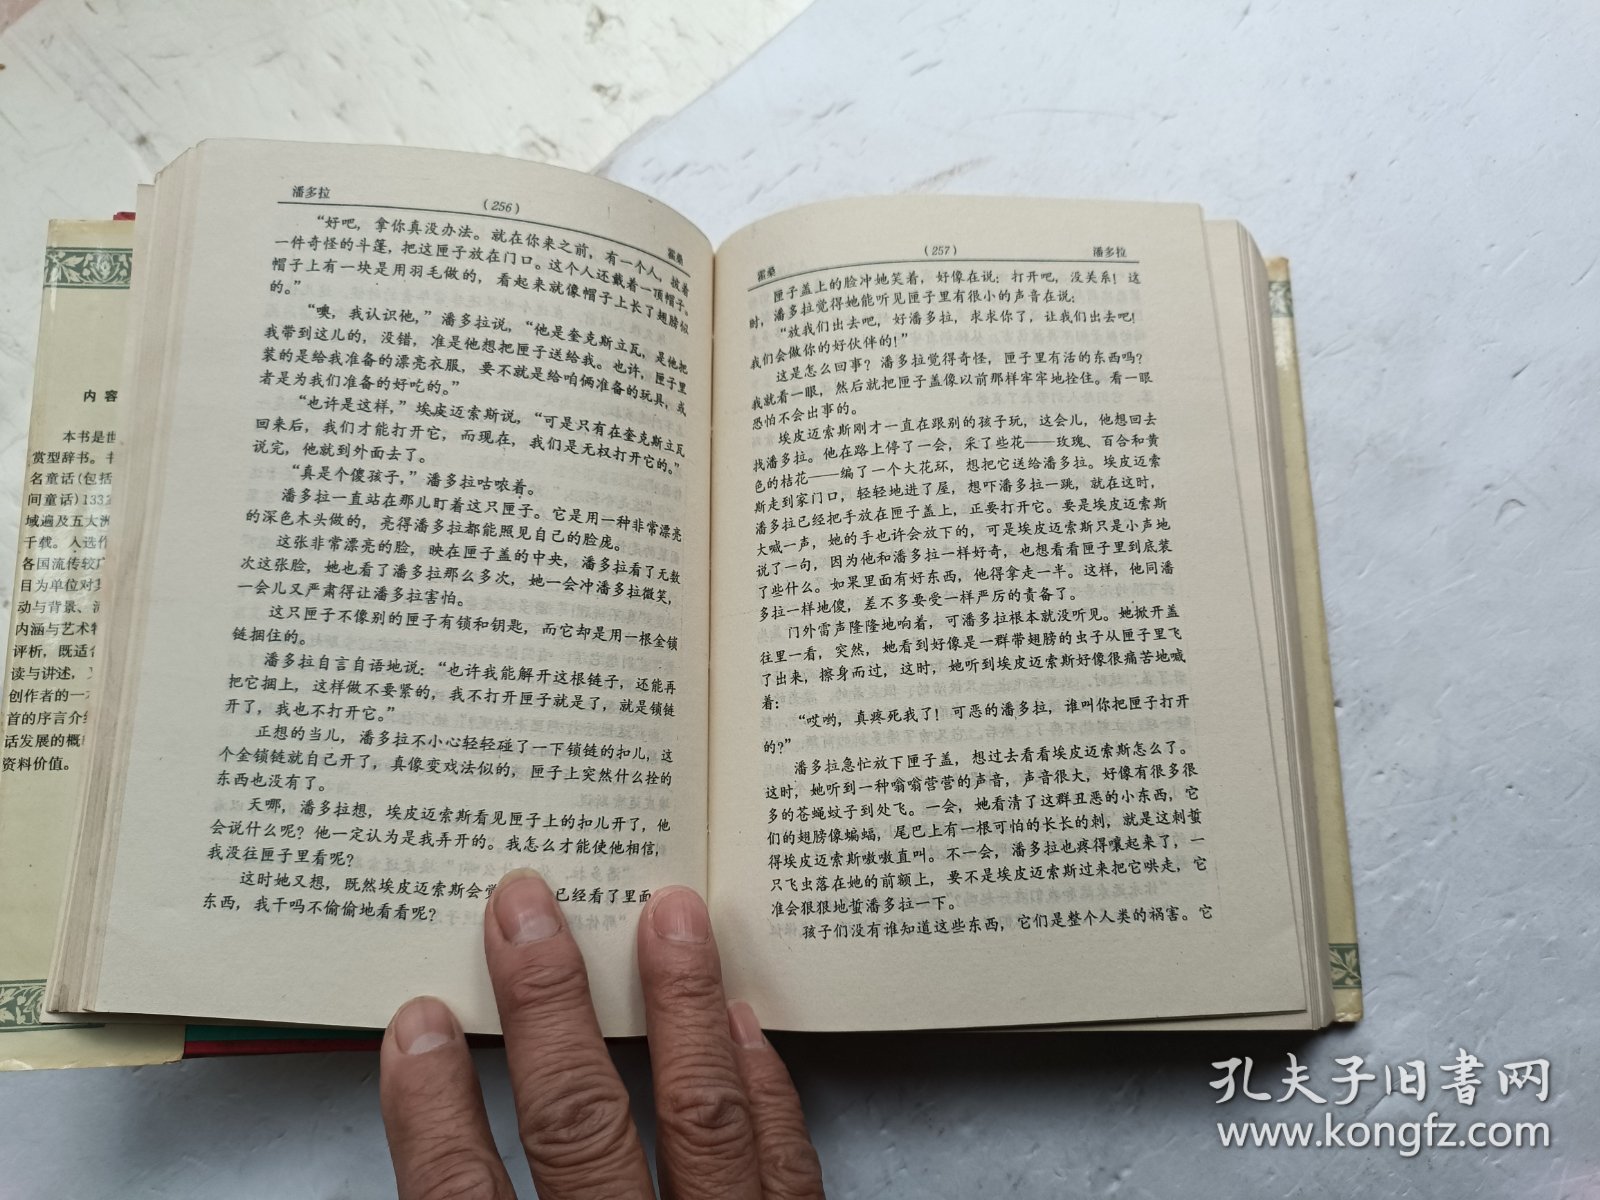 内容
本书是世
赏型辞书。书
名童话(包括
间童话)133
域遍及五大洲
千载。入选作
各国流传较广
目为单位对其
动与背景、
内涵与艺术特
评析，既适合
读与讲述，
创作者的一
首的序言介绍
话发展的概
资料价值。
潘多拉
(256)
霍桑
“好吧，拿你真没办法。就在你来之前，有一个人，披着
一件奇怪的斗篷，把这匣子放在门口。这个人还戴着一顶帽子。
帽子上有一块是用羽毛做的，看起来就像帽子上长了翅膀似
的。”
“噢，我认识他，”潘多拉说，“他是奎克斯立瓦，是他把
我带到这儿的，没错，准是他想把匣子送给我。也许，匣子里
装的是给我准备的漂亮衣服，要不就是给咱俩准备的玩具，或
者是为我们准备的好吃的。”
“也许是这样，”埃皮迈索斯说，“可是只有在奎克斯立瓦
回来后，我们才能打开它，而现在，我们是无权打开它的。”
说完，他就到外面去了。
“真是个傻孩子，”潘多拉咕哝着。
潘多拉一直站在那儿盯着这只匣子。它是用一种非常漂亮
的深色木头做的，亮得潘多拉都能照见自己的脸庞。
这张非常漂亮的脸，映在匣子盖的中央，潘多拉看了无数
次这张脸，她也看了潘多拉那么多次，她一会冲潘多拉微笑，
一会儿又严肃得让潘多拉害怕。
这只匣子不像别的匣子有锁和钥匙，而它却是用一根金锁
链捆住的。
潘多拉自言自语地说：“也许我能解开这根链子，还能再
把它捆上，这样做不要紧的，我不打开匣子就是了，就是锁链
开了，我也不打开它。”
正想的当儿，潘多拉不小心轻轻碰了一下锁链的扣儿，这
个金锁链就自己开了，真像变戏法似的，匣子上突然什么拴的
东西也没有了。
天哪，潘多拉想，埃皮迈索斯看见匣子上的扣儿开了，他
会说什么呢？他一定认为是我弄开的。我怎么才能使他相信，
我没往匣子里看呢？
这时她又想，既然埃皮迈索斯会觉 已经看了里面
东西，我干吗不偷偷地看看呢？
霍桑
(257)
潘多拉
匣子盖上的脸冲她笑着，好像在说：打开吧，没关系！这
时，潘多拉觉得她能听见匣子里有很小的声音在说：
“放我们出去吧，好潘多拉，求求你了，让我们出去吧！
我们会做你的好伙伴的！”
这是怎么回事？潘多拉觉得奇怪，匣子里有活的东西吗？
我就看一眼，然后就把匣子盖像以前那样牢牢地拴住。看一眼
恐怕不会出事的。
埃皮迈索斯刚才一直在跟别的孩子玩，这会儿，他想回去
找潘多拉。他在路上停了一会，采了些花——玫瑰、百合和黄
色的桔花——编了一个大花环，想把它送给潘多拉。埃皮迈索
斯走到家门口，轻轻地进了屋，想吓潘多拉一跳，就在这时，
潘多拉已经把手放在匣子盖上，正要打开它。要是埃皮迈索斯
大喊一声，她的手也许会放下的，可是埃皮迈索斯只是小声地
说了一句，因为他和潘多拉一样好奇，也想看看匣子里到底装
了些什么。如果里面有好东西，他得拿走一半。这样，他同潘
多拉一样地傻，差不多要受一样严厉的责备了。
门外雷声隆隆地响着，可潘多拉根本就没听见。她掀开盖
往里一看，突然，她看到好像是一群带翅膀的虫子从匣子里飞
了出来，擦身而过，这时，她听到埃皮迈索斯好像很痛苦地喊
着：
“哎哟，真疼死我了！可恶的潘多拉，谁叫你把匣子打开
的？”
潘多拉急忙放下匣子盖，想过去看看埃皮迈索斯怎么了。
这时，她听到一种嗡嗡营营的声音，声音很大，好像有很多很
多的苍蝇蚊子到处飞。一会，她看清了这群丑恶的小东西，它
们的翅膀像蝙蝠，尾巴上有一根可怕的长长的刺，就是这刺蜇
得埃皮迈索斯嗷嗷直叫。不一会，潘多拉也疼得嚷起来了，一
只飞虫落在她的前额上，要不是埃皮迈索斯过来把它哄走，它
准会狠狠地蜇潘多拉一下。
孩子们没有谁知道这些东西，它们是整个人类的祸害。它
孔夫子旧书网
www.kongfz.com